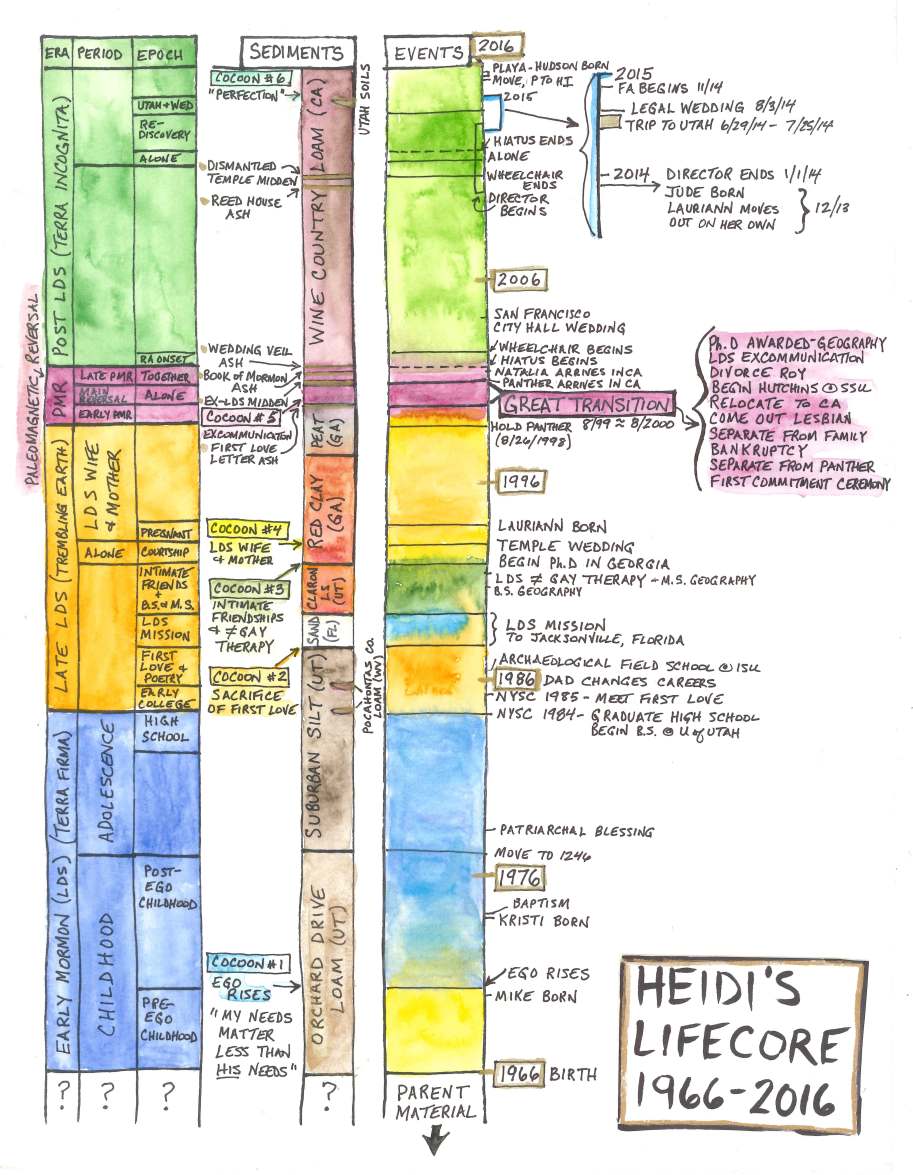 ERA PERIOD EPOCH
POST LDS (TERRA INCOGNITA)
UTAH + WED
RE-
DISCOVERY
ALONE
RA ONSET
PALEOMAGNETIC REVERSAL
PMR
LATE PMR
TOGETHER
MAIN
REVERSAL
ALONE
EARLY PMR
LATE LDS (TREMBLING EARTH)
LDS WIFE
& MOTHER
PREGNANT
ALONE
COURTSHIP
INTIMATE
FRIENDS
+
B.S. & M.S.
LDS
MISSION
FIRST
LOVE &
POETRY
EARLY
COLLEGE
EARLY MORMON (LDS) (TERRA FIRMA)
ADOLESCENCE
HIGH
SCHOOL
CHILDHOOD
POST-
EGO
CHILDHOOD
PRE-
EGO
CHILDHOOD
? ? ?
SEDIMENTS
COCOON #6
"PERFECTION"
UTAH SOILS
DISMANTLED
TEMPLE MIDDEN
REED HOUSE
ASH
WINE COUNTRY LOAM (CA)
WEDDING VEIL
ASH
BOOK OF MORMON
ASH
EX-LDS MIDDEN
COCOON #5
EXCOMMUNICATION
FIRST LOVE
LETTER ASH
PEAT
(GA)
RED CLAY
(GA)
COCOON #4
LDS WIFE
& MOTHER
COCOON #3
INTIMATE
FRIENDSHIPS
& ≠ GAY
THERAPY
CLARON
LS
(UT)
SAND
(FL)
COCOON #2
SACRIFICE
OF FIRST LOVE
POCAHONTAS CO.
LOAM (WV)
SUBURBAN SILT (UT)
ORCHARD DRIVE
LOAM (UT)
COCOON #1
EGO
RISES
"MY NEEDS
MATTER
LESS THAN
HIS NEEDS"
?
EVENTS
2016
PLAYA-HUDSON BORN
MOVE, P TO HI
2015
HIATUS ENDS
ALONE
WHEELCHAIR
ENDS
DIRECTOR
BEGINS
2015
FA BEGINS 11/14
LEGAL WEDDING 8/3/14
TRIP TO UTAH 6/29/14 - 7/25/14
2014
DIRECTOR ENDS 1/1/14
JUDE BORN
LAURIANN MOVES
OUT ON HER OWN
12/13
2006
SAN FRANCISCO
CITY HALL WEDDING
WHEELCHAIR BEGINS
HIATUS BEGINS
NATALIA ARRIVES IN CA
PANTHER ARRIVES IN CA
GREAT TRANSITION
8/99 ≈ 8/2000
HOLD PANTHER
(8/26/1998)
Ph.D AWARDED-GEOGRAPHY
LDS EXCOMMUNICATION
DIVORCE ROY
BEGIN HUTCHINS @ SSU
RELOCATE TO CA
COME OUT LESBIAN
SEPARATE FROM FAMILY
BANKRUPTCY
SEPARATE FROM PANTHER
FIRST COMMITMENT CEREMONY
1996
LAURIANN BORN
TEMPLE WEDDING
BEGIN Ph.D IN GEORGIA
LDS ≠ GAY THERAPY - M.S. GEOGRAPHY
B.S. GEOGRAPHY
LDS MISSION
TO JACKSONVILLE, FLORIDA
ARCHAEOLOGICAL FIELD SCHOOL @ ISU
1986 DAD CHANGES CAREERS
NYSC 1985 - MEET FIRST LOVE
NYSC 1984 - GRADUATE HIGH SCHOOL
BEGIN B.S. @ U of UTAH
PATRIARCHAL BLESSING
MOVE TO 1246
1976
BAPTISM
KRISTI BORN
EGO RISES
MIKE BORN
1966 BIRTH
PARENT
MATERIAL
HEIDI'S
LIFECORE
1966-2016